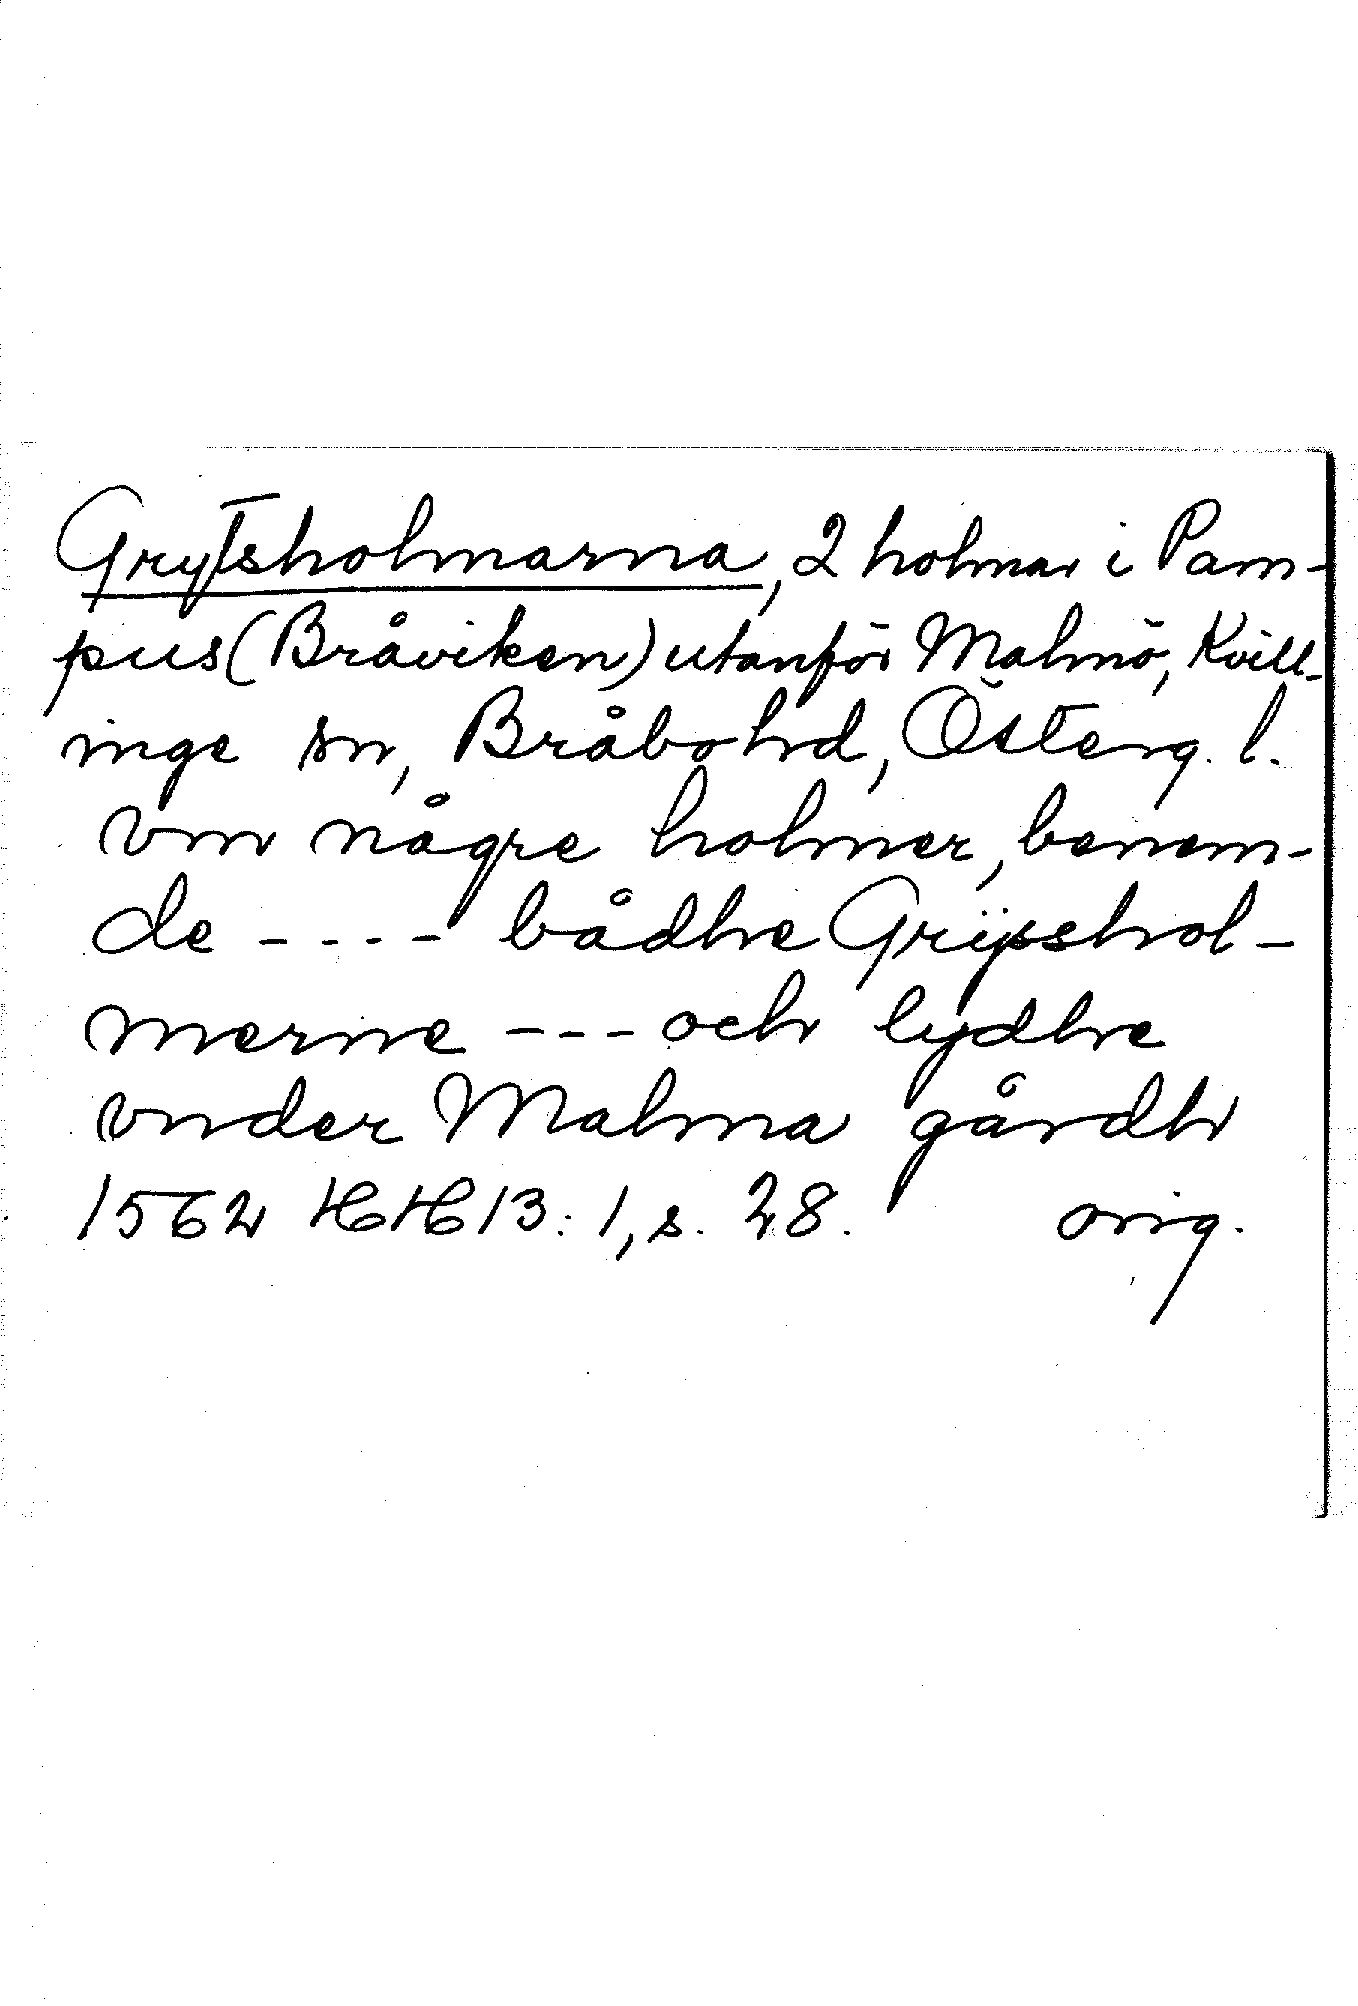 Grytsholmarna, 2 holmar i Pam-
pus (Bråviken) utanför Malmö, Kvill-
inge sn, Bråbo hd, Österg. l.
vm någre holmer, benem-
de ---- bådhe Grijsshol-
merne --- och lydhe
vnder Malma gårdh
1562 HH 13:1, s. 28. orig.